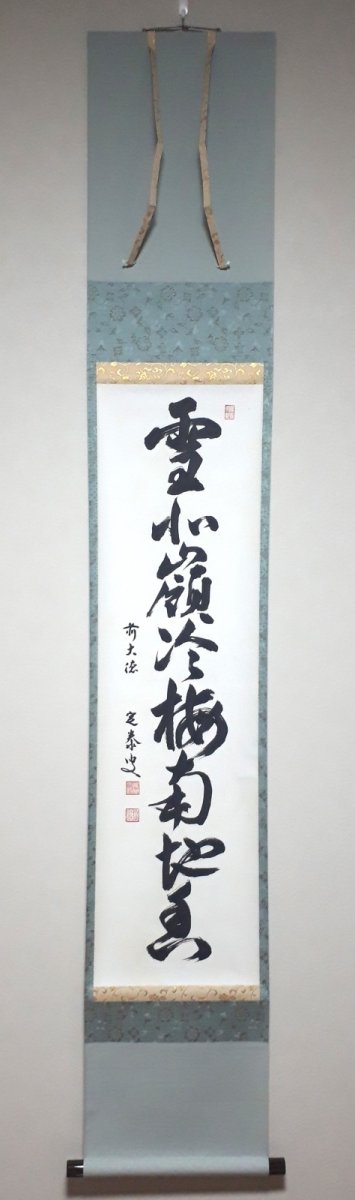 雪北嶺冷梅南地香
前大徳 定泰叟